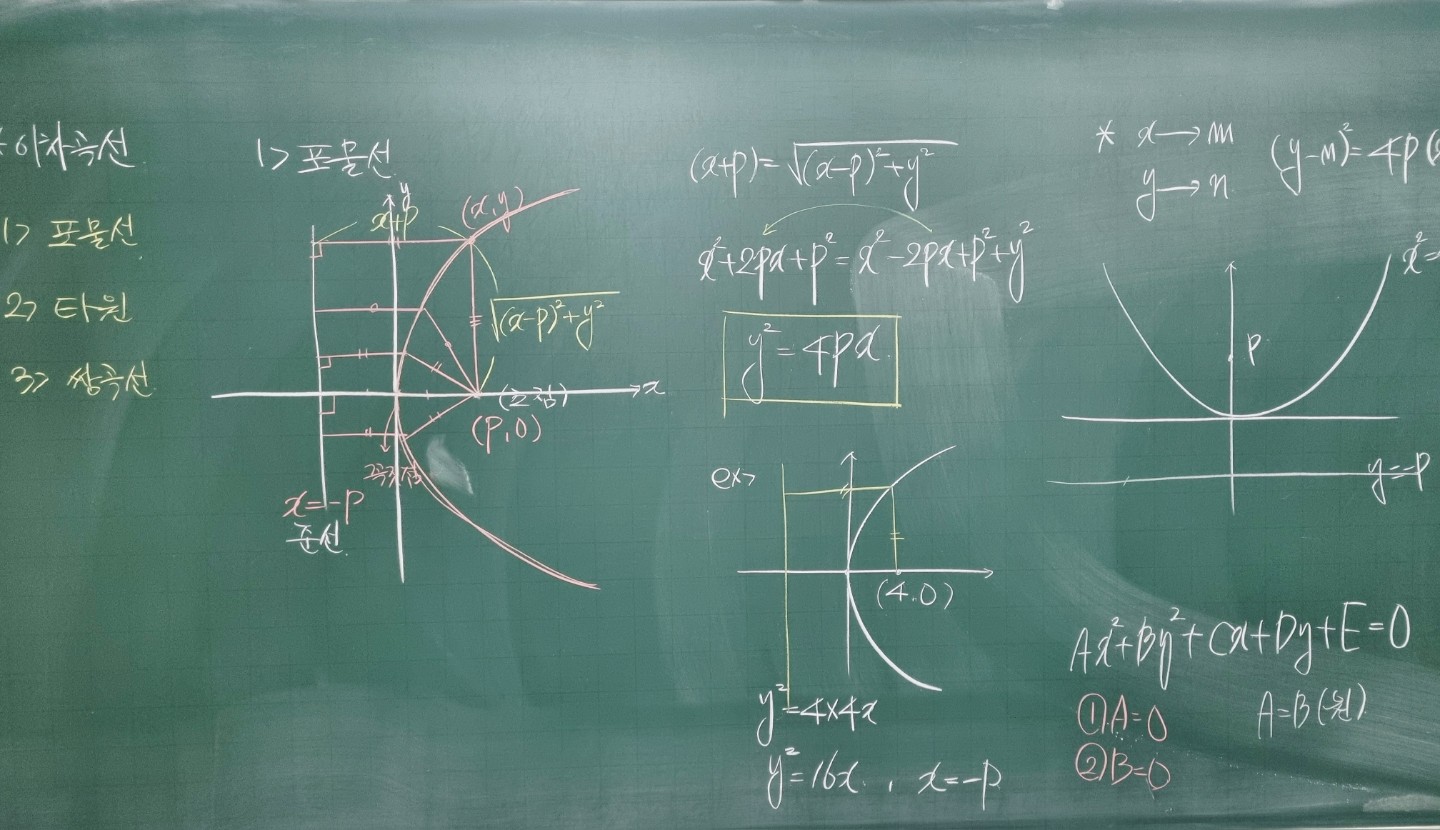 * 이차곡선
1> 포물선
2> 타원
3> 쌍곡선
1> 포물선
y
x+p
(x,y)
√(x-p)²+y²
x
(초점)
(P,0)
꼭짓점
x=-P
준선
(x+p)=√(x-p)²+y²
x²+2px+p²=x²-2px+p²+y²
y²=4px
ex>
(4.0)
y²=4×4x
y²=16x. , x=-p
* x→m
y→n
(y-n)²=4p(
x²=
P
y=-P
Ax²+By²+Cx+Dy+E=0
①A=0
②B=0
A=B(원)